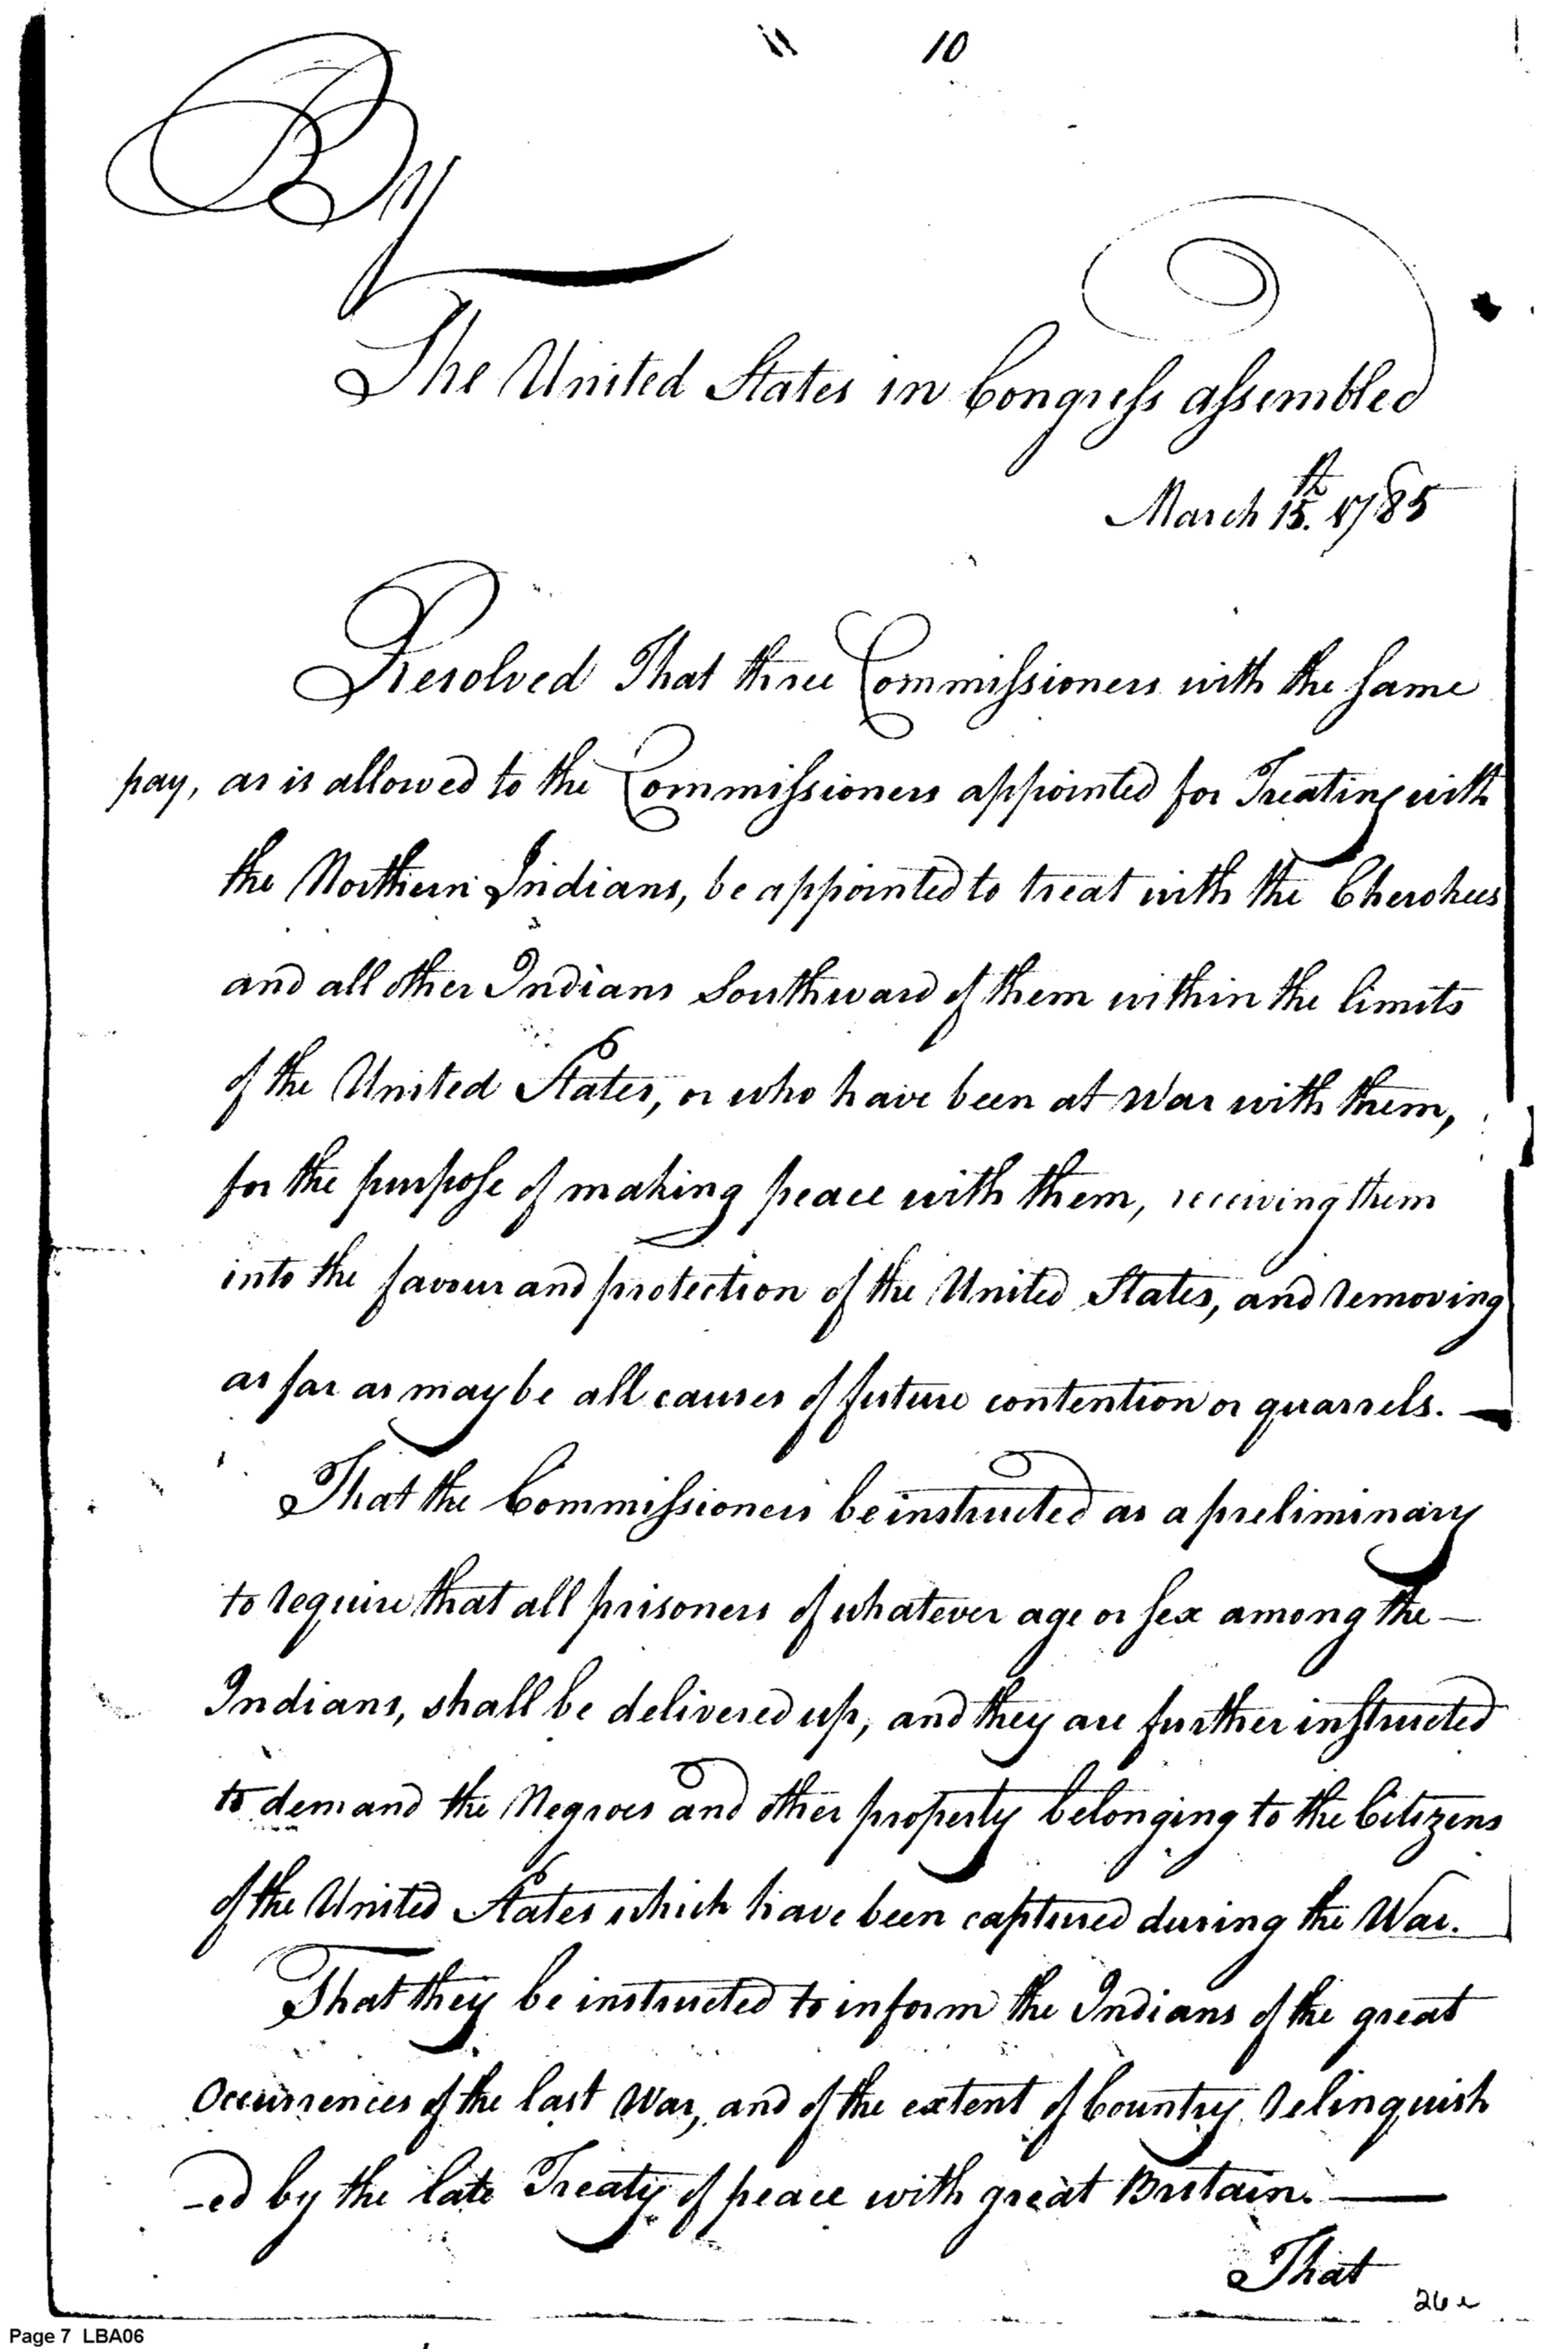 10
By
The United States in Congress assembled
March 15.th 1785
Resolved That three Commissioners with the same
pay, as is allowed to the Commissioners appointed for Treating with
the Northern Indians, be appointed to treat with the Cherokees
and all other Indians Southward of them within the limits
of the United States, or who have been at War with them,
for the purpose of making peace with them, receiving them
into the favour and protection of the United States, and removing
as far as may be all causes of future contention or quarrels. —
That the Commissioners be instructed as a preliminary
to require that all prisoners of whatever age or sex among the —
Indians, shall be delivered up, and they are further instructed
to demand the Negroes and other property belonging to the Citizens
of the United States which have been captured during the War.
That they be instructed to inform the Indians of the great
Occurrences of the last War, and of the extent of Country relinquish
-ed by the late Treaty of peace with great Britain. —
That
Page 7 LBA06